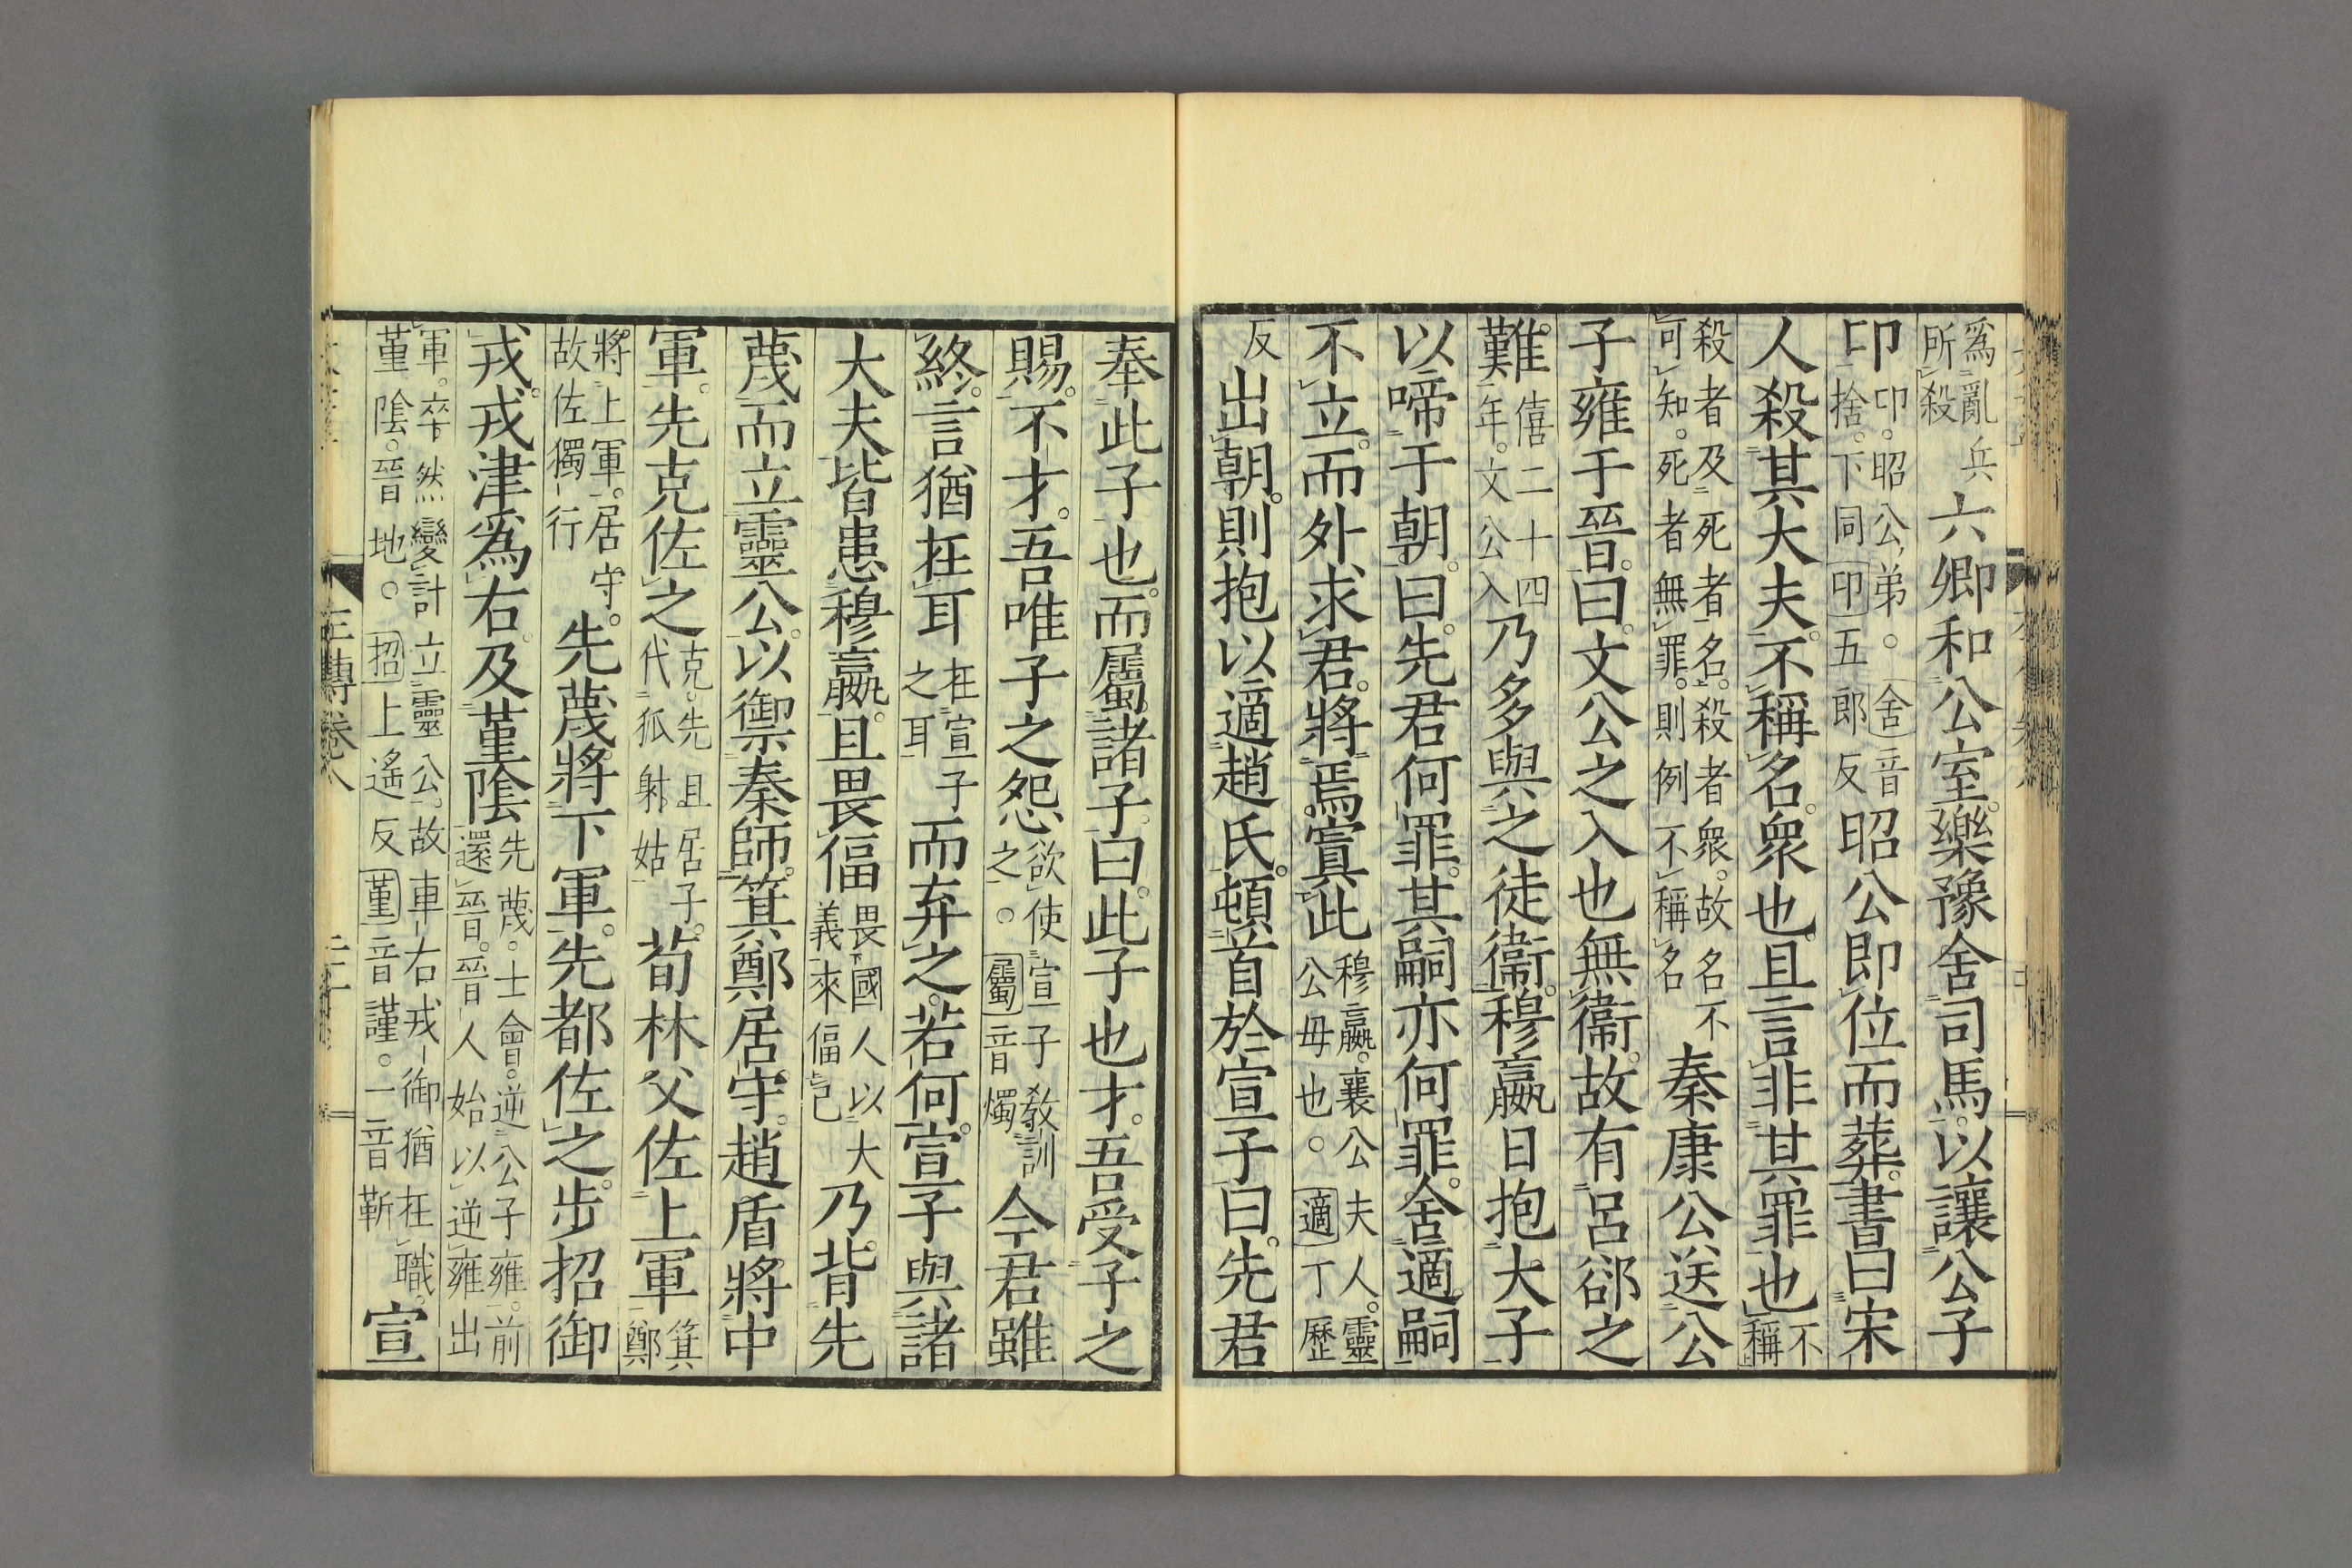 爲亂兵所殺六卿和公室。樂豫舍司馬。以讓公子
卬卬。昭公弟。○舍音捨。下同卬五郎反昭公即位而葬。書曰。宋
人殺其大夫。不稱名。衆也。且言非其罪也不稱
殺者及死者名。殺者衆。故名不可知。死者無罪。則例不稱名秦康公送公
子雍于晉。曰。文公之入也無衞。故有呂郤之
難。僖二十四年。文公入乃多與之徒衞。穆嬴日抱大子
以啼于朝。曰。先君何罪。其嗣亦何罪。舍適嗣
不立。而外求君。將焉寘此穆嬴。襄公夫人。靈公母也。適丁歷
反出朝。則抱以適趙氏。頓首於宣子曰。先君
奉此子也。而屬諸子。曰。此子也才。吾受子之
賜。不才。吾唯子之怨。欲使宣子敎訓之。○屬音燭今君雖
終。言猶在耳在宣子之耳而弃之。若何。宣子與諸
大夫皆患穆嬴。且畏偪畏國人以大義來偪己乃背先
蔑而立靈公。以禦秦師。箕鄭居守。趙盾將中
軍。先克佐之克。先且居子。代狐射姑荀林父佐上軍箕鄭
將上軍。居守。故佐獨行先蔑將下軍。先都佐之。步招御
戎。戎津爲右。及菫陰先蔑。士會。逆公子雍。前還晉。晉人始以逆雍出
軍。卒然變計立靈公。故車右戎御猶在職。菫陰。晉地。○招上遙反菫音謹。一音靳宣
三傳卷八